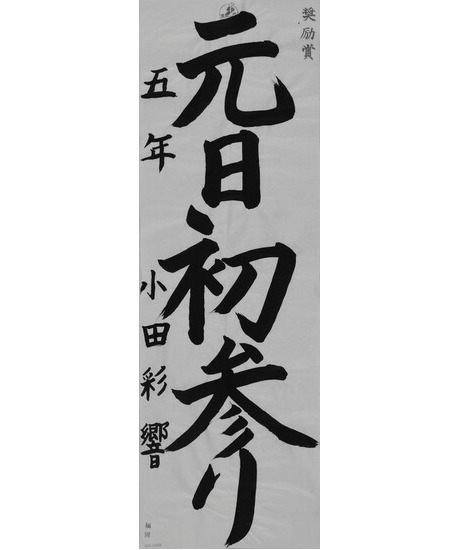 奨励賞
元日初参り
五年 小田彩響
福岡